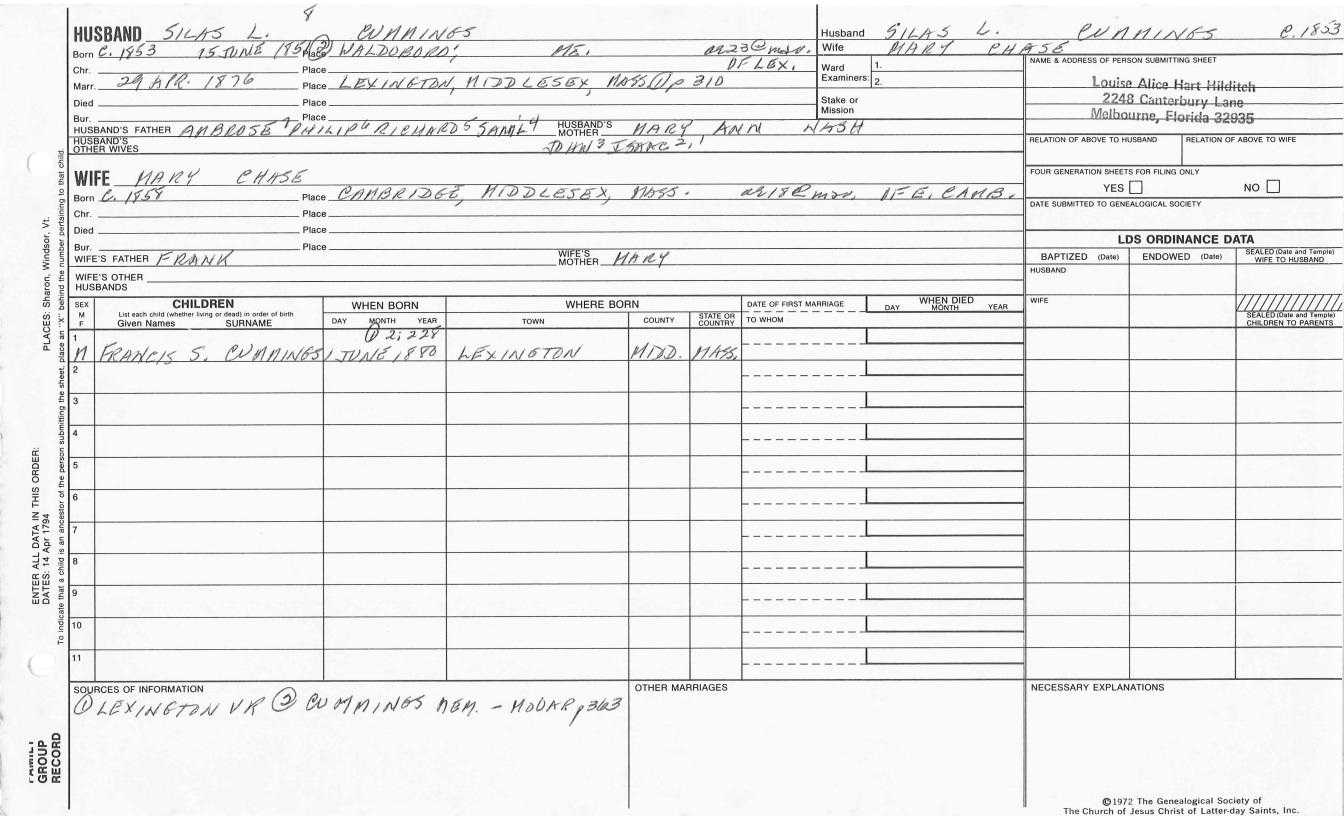 8
HUSBAND SILAS L. CUMMINGS
Born C. 1853 15 JUNE 185 ② Place WALDOBORO, ME. ae 23 @ marr.
Chr. Place OF LEX.
Marr. 29 APR. 1876 Place LEXINGTON, MIDDLESEX, MASS ① p 310
Died Place
Bur. Place
HUSBAND'S FATHER AMBROSE 7 PHILIP 6 RICHARD 5 SAM'L 4 HUSBAND'S MOTHER MARY ANN WASH
HUSBAND'S OTHER WIVES JOHN 3 ISAAC 2, 1
WIFE MARY CHASE
Born C. 1858 Place CAMBRIDGE, MIDDLESEX, MASS. ae 18 @ marr. OF E. CAMB.
Chr. Place
Died Place
Bur. Place
WIFE'S FATHER FRANK WIFE'S MOTHER MARY
WIFE'S OTHER HUSBANDS
Husband SILAS L. CUMMINGS C. 1853
Wife MARY CHASE
Ward Examiners: 1.
2.
Stake or Mission
NAME & ADDRESS OF PERSON SUBMITTING SHEET
Louise Alice Hart Hilditch
2248 Canterbury Lane
Melbourne, Florida 32935
RELATION OF ABOVE TO HUSBAND RELATION OF ABOVE TO WIFE
FOUR GENERATION SHEETS FOR FILING ONLY
YES NO
DATE SUBMITTED TO GENEALOGICAL SOCIETY
LDS ORDINANCE DATA
BAPTIZED (Date) ENDOWED (Date) SEALED (Date and Temple) WIFE TO HUSBAND
HUSBAND
WIFE
SEALED (Date and Temple) CHILDREN TO PARENTS
SEX M F
CHILDREN
List each child (whether living or dead) in order of birth
Given Names SURNAME
WHEN BORN
DAY MONTH YEAR
WHERE BORN
TOWN COUNTY STATE OR COUNTRY
DATE OF FIRST MARRIAGE
TO WHOM
WHEN DIED
DAY MONTH YEAR
① 2; 228
1
M FRANCIS S. CUMMINGS 1 JUNE, 1880 LEXINGTON MIDD. MASS.
2
3
4
5
6
7
8
9
10
11
SOURCES OF INFORMATION
① LEXINGTON VR ② CUMMINGS MEM. - MOOAR p 363
OTHER MARRIAGES
NECESSARY EXPLANATIONS
©1972 The Genealogical Society of
The Church of Jesus Christ of Latter-day Saints, Inc.
ENTER ALL DATA IN THIS ORDER:
DATES: 14 Apr 1794 PLACES: Sharon, Windsor, Vt.
To indicate that a child is an ancestor of the person submitting the sheet, place an "X" behind the number pertaining to that child.
FAMILY
GROUP
RECORD